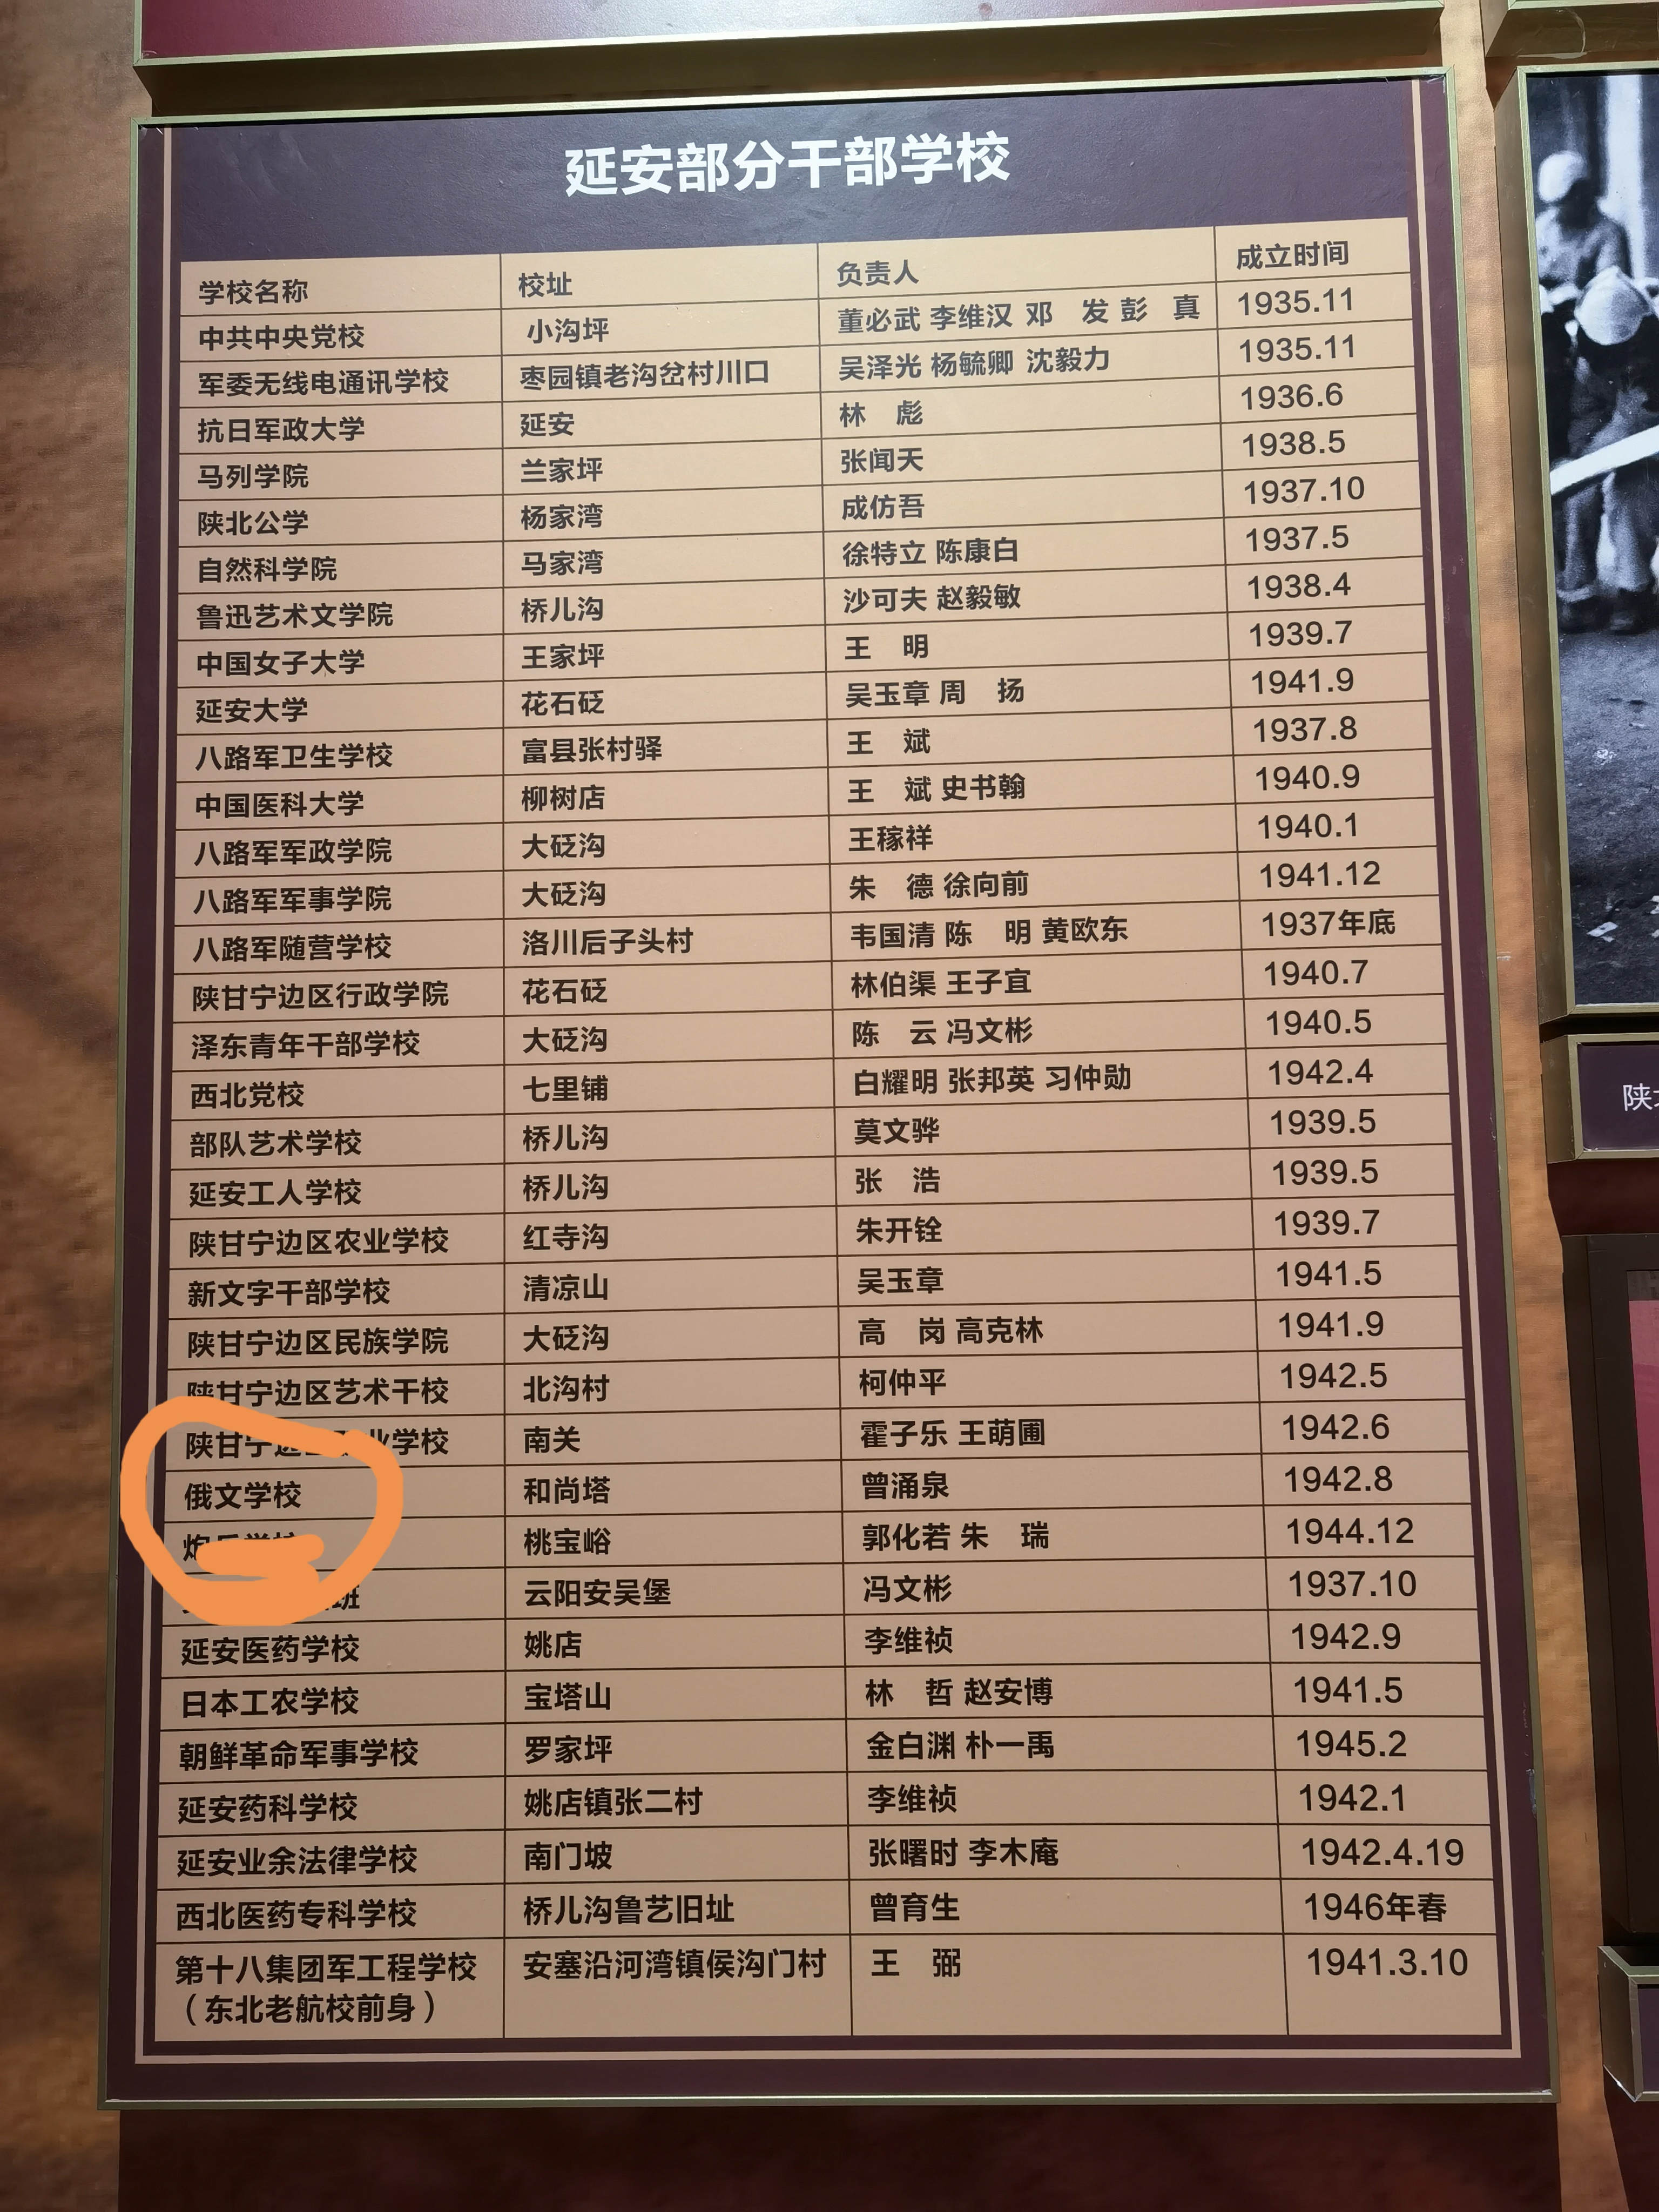 延安部分干部学校
学校名称 校址 负责人 成立时间
中共中央党校 小沟坪 董必武 李维汉 邓 发 彭 真 1935.11
军委无线电通讯学校 枣园镇老沟岔村川口 吴泽光 杨毓卿 沈毅力 1935.11
抗日军政大学 延安 林 彪 1936.6
马列学院 兰家坪 张闻天 1938.5
陕北公学 杨家湾 成仿吾 1937.10
自然科学院 马家湾 徐特立 陈康白 1937.5
鲁迅艺术文学院 桥儿沟 沙可夫 赵毅敏 1938.4
中国女子大学 王家坪 王 明 1939.7
延安大学 花石砭 吴玉章 周 扬 1941.9
八路军卫生学校 富县张村驿 王 斌 1937.8
中国医科大学 柳树店 王 斌 史书翰 1940.9
八路军军政学院 大砭沟 王稼祥 1940.1
八路军军事学院 大砭沟 朱 德 徐向前 1941.12
八路军随营学校 洛川后子头村 韦国清 陈 明 黄欧东 1937年底
陕甘宁边区行政学院 花石砭 林伯渠 王子宜 1940.7
泽东青年干部学校 大砭沟 陈 云 冯文彬 1940.5
西北党校 七里铺 白耀明 张邦英 习仲勋 1942.4
部队艺术学校 桥儿沟 莫文骅 1939.5
延安工人学校 桥儿沟 张 浩 1939.5
陕甘宁边区农业学校 红寺沟 朱开铨 1939.7
新文字干部学校 清凉山 吴玉章 1941.5
陕甘宁边区民族学院 大砭沟 高 岗 高克林 1941.9
陕甘宁边区艺术干校 北沟村 柯仲平 1942.5
陕甘宁 业学校 南关 霍子乐 王萌圃 1942.6
俄文学校 和尚塔 曾涌泉 1942.8
炮兵学校 桃宝峪 郭化若 朱 瑞 1944.12
班 云阳安吴堡 冯文彬 1937.10
延安医药学校 姚店 李维祯 1942.9
日本工农学校 宝塔山 林 哲 赵安博 1941.5
朝鲜革命军事学校 罗家坪 金白渊 朴一禹 1945.2
延安药科学校 姚店镇张二村 李维祯 1942.1
延安业余法律学校 南门坡 张曙时 李木庵 1942.4.19
西北医药专科学校 桥儿沟鲁艺旧址 曾育生 1946年春
第十八集团军工程学校 安塞沿河湾镇侯沟门村 王 弼 1941.3.10
（东北老航校前身）
陕